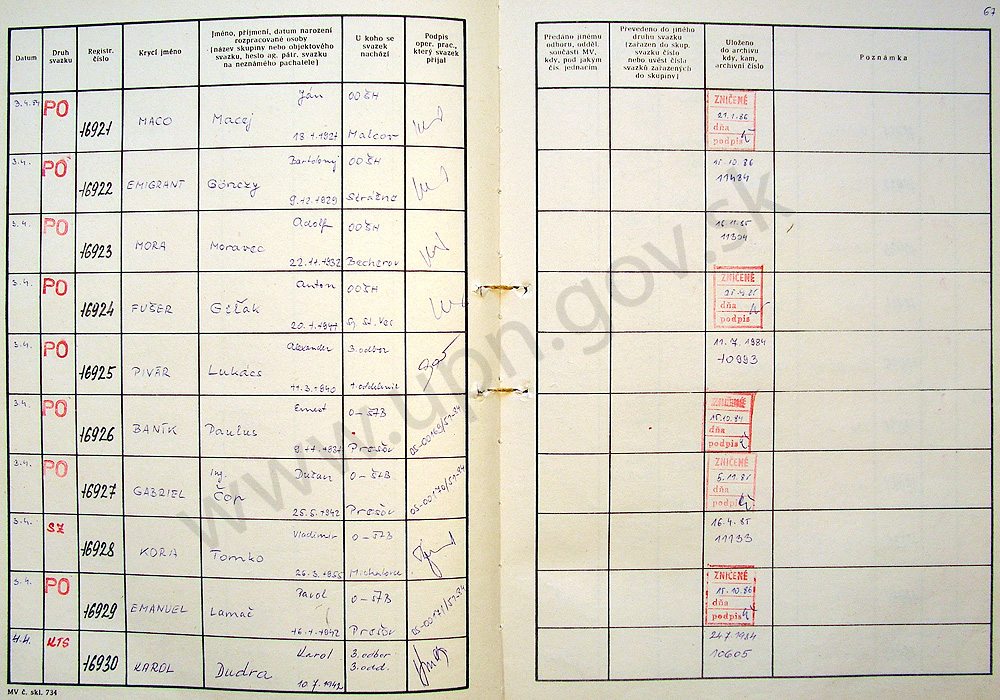 67
Datum
Druh svazku
Registr. číslo
Krycí jméno
Jméno, příjmení, datum narození rozpracované osoby (název skupiny nebo objektového svazku, heslo ag. pátr. svazku na neznámého pachatele)
U koho se svazek nachází
Podpis oper. prac., který svazek přijal
Předáno jinému odboru, odděl. součásti MV, kdy, pod jakým čís. jednacím
Převedeno do jiného druhu svazku (zařazen do skup. svazku číslo nebo uvést čísla svazků zařazených do skupiny)
Uloženo do archivu kdy, kam, archivní číslo
Poznámka
3.4.84 PO 16921 MACO Ján Macej 13.1.1921 OOŠH Malcov
ZNIČENÉ 21.1.86 dňa podpis
3.4. PO 16922 EMIGRANT Bartolomej Gönczy 9.12.1929 OOŠH Strážne
15.10.86 11484
3.4. PO 16923 MORA Adolf Moravec 22.11.1932 OOŠH Becherov
11304
3.4. PO 16924 FUŠER Anton OOŠH
ZNIČENÉ dňa podpis
3.4. PO 16925 PIVÁR Alexander Lukács 11.3.1940 3.odbor 1.oddelenie
11.7.1984 10993
3.4. PO 16926 BANÍK Ernest Paulus O-ŠTB Prešov
ZNIČENÉ 15.10.84 dňa podpis
3.4. PO 16927 GABRIEL Ing. Dušan Čop 25.5.1942 O-ŠTB Prešov OS-00170/51-84
ZNIČENÉ 5.11.85 dňa podpis
3.4. SZ 16928 KORA Vladimír Tomko 26.3.1955 O-ŠTB Michalovce
16.4.85 11133
3.4. PO 16929 EMANUEL Pavol Lamač 16.1.1942 O-ŠTB Prešov OS-00171/51-84
ZNIČENÉ 15.10.86 dňa podpis
4.4. KTS 16930 KAROL Karol Dudra 10.7.1942 3.odbor 3.odd.
24.7.1984 10605
MV č. skl. 734
www.upn.gov.sk